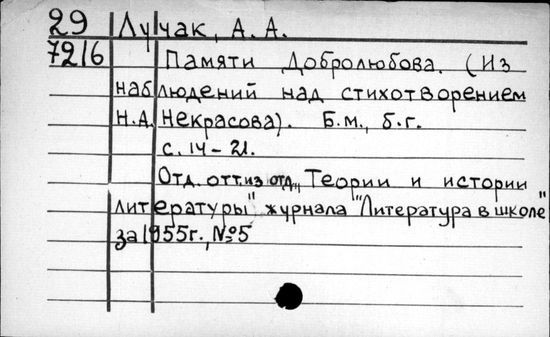 29 Лучак, А. А.
7216 Памяти Добролюбова. (Из
наблюдений над стихотворением
Н.А. Некрасова). Б.м., б.г.
с. 14-21.
Отд. отт. из отд. "Теории и истории
литературы" журнала "Литература в школе"
за 1955г., №5